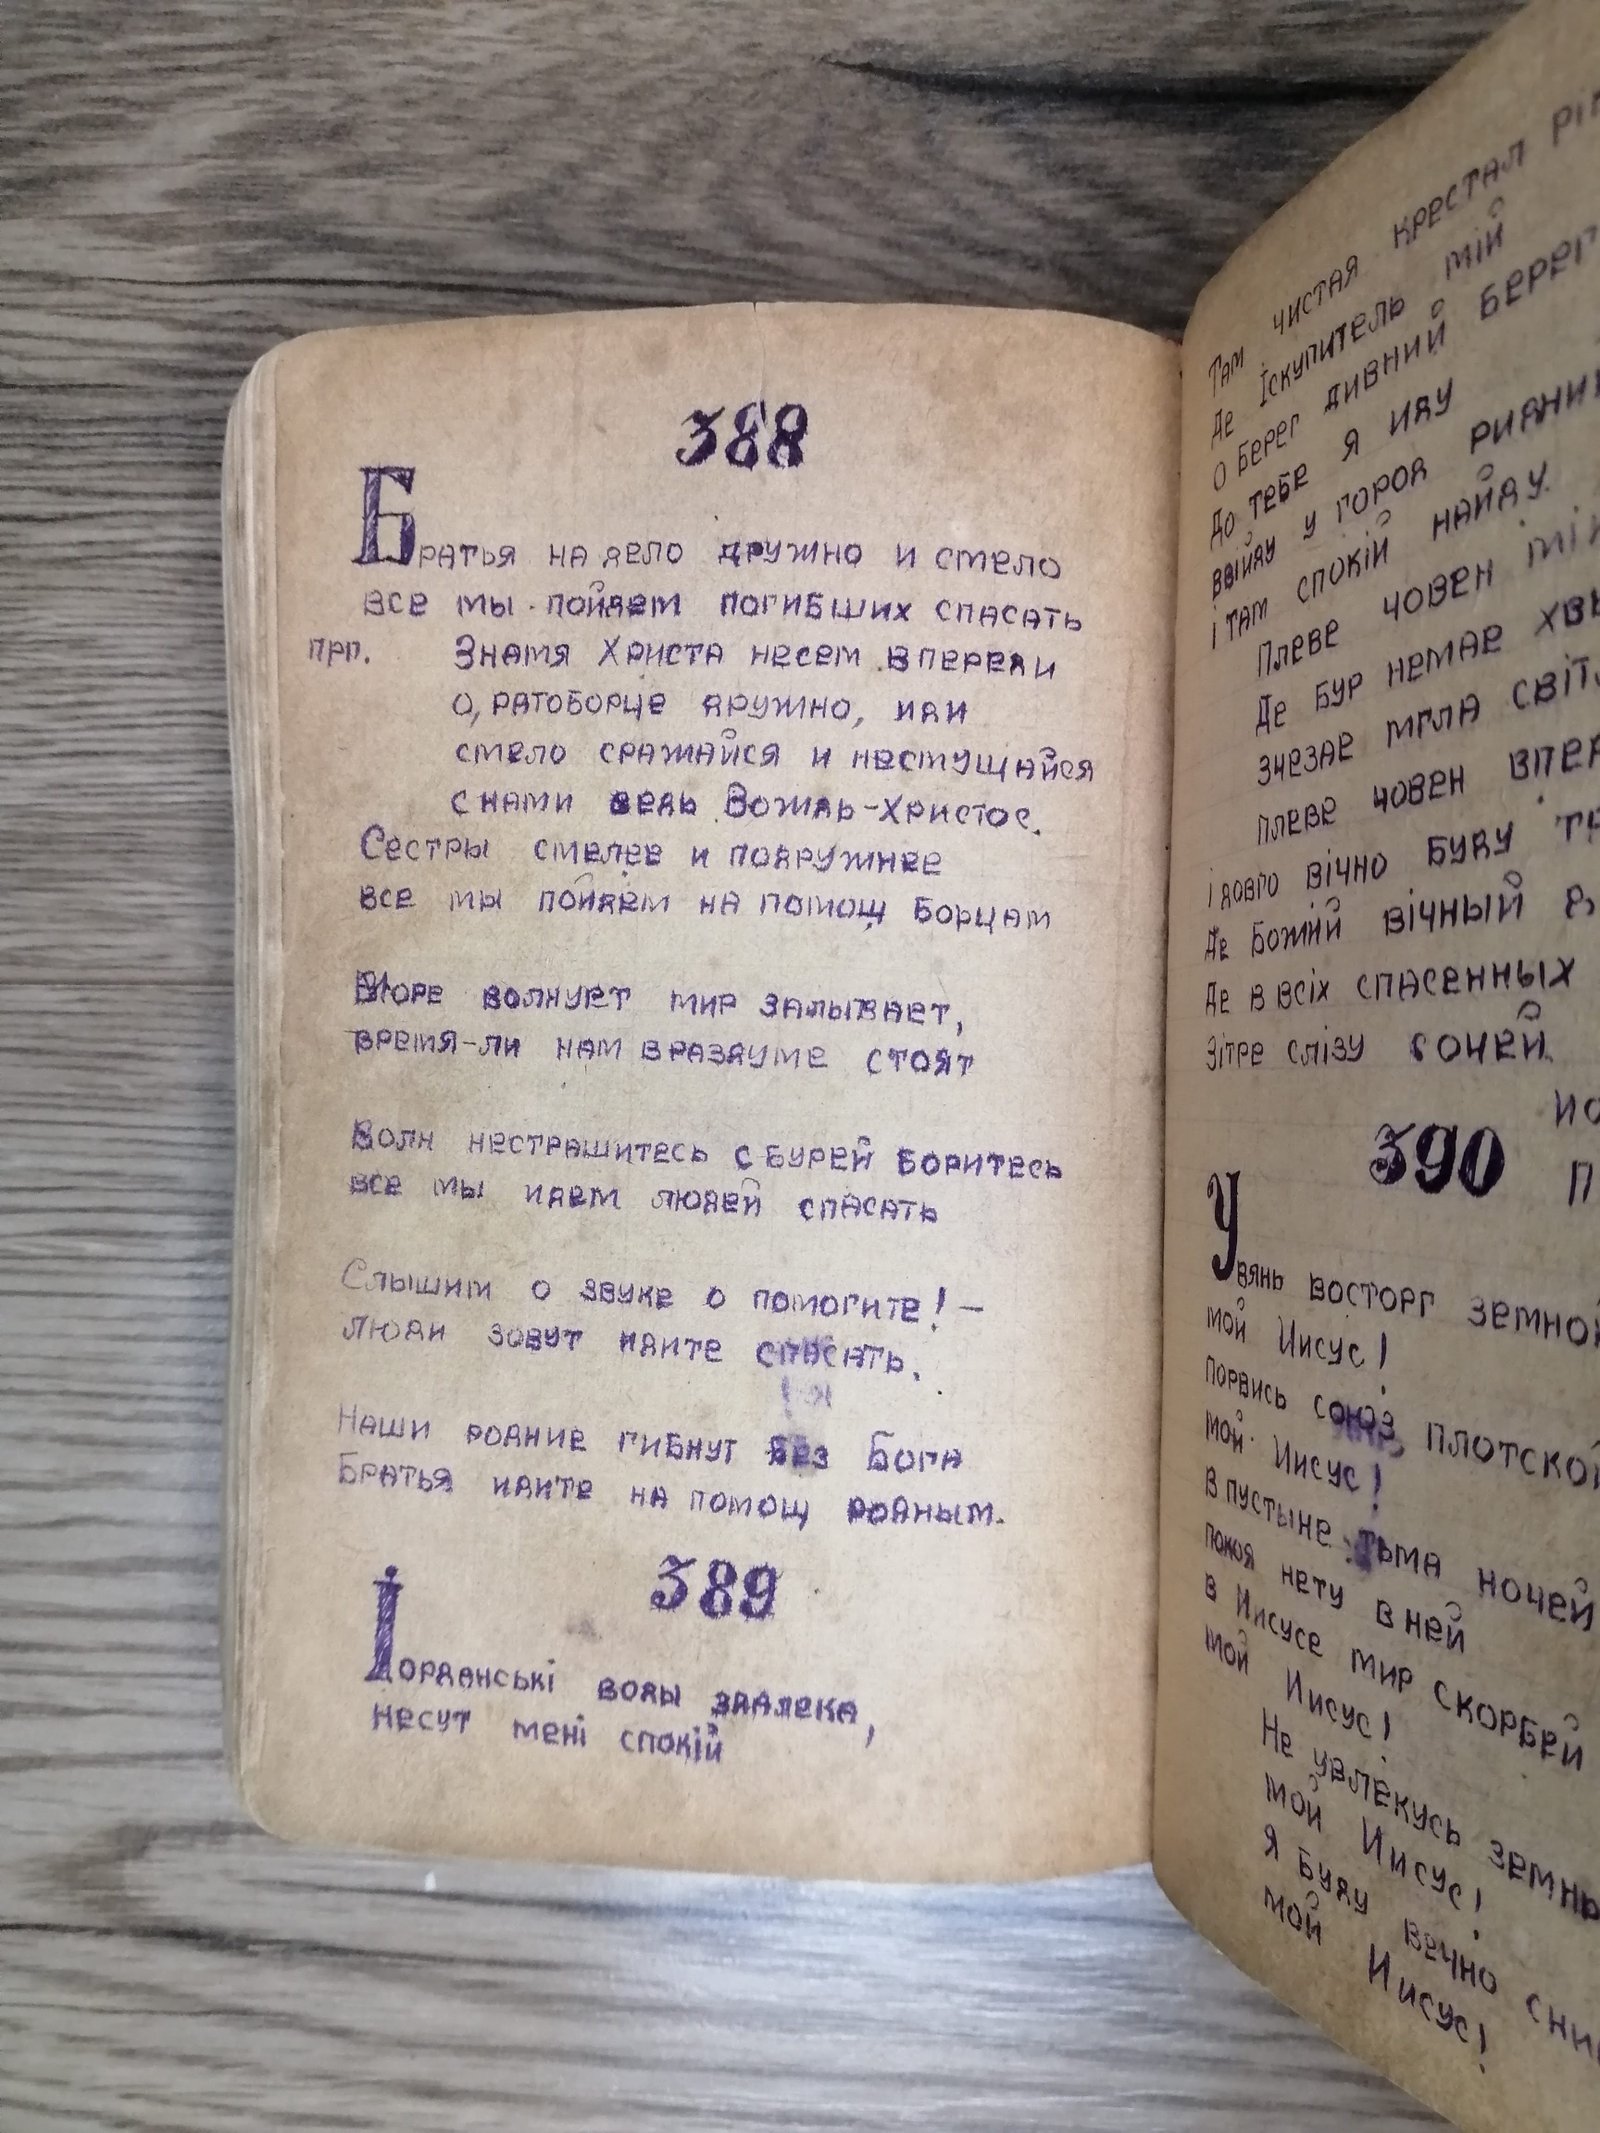 388
Братья на дело дружно и смело
все мы пойдем погибших спасать
прп. Знамя Христа несем впереди
о, ратоборце дружно, иди
смело сражайся и нестущайся
с нами ведь Вождь-Христос.
Сестры смелее и подружнее
все мы пойдем на помощ борцам
Море волнует мир заливает,
время-ли нам враздуме стоят
Волн нестрашитесь с бурей боритесь
все мы идем людей спасать
Слышим о звуке о помогите! -
люди зовут идите спасать.
Наши родние гибнут без Бога
Братья идите на помощ родным.
389
Іорданські воды здалека,
несут мені спокій
Там чистая крестал
Де Іскупитель мій
О берег дивний берег
До тебе я иду
ввійду у город
І там спокій найду.
Плеве човен
Де бур немае
зчезае мгла
плеве човен
і довго вічно буду
Де Божий вічный
Де в всіх спасенных
Зітре слізу с очей.
390
Увянь восторг земной
мой Иисус!
порвись союз плотской
мой Иисус!
В пустыне тьма ночей
покоя нету в ней
в Иисусе мир скорбей
мой Иисус!
Не увлекусь
мой Иисус!
Я буду вечно
мой Иисус!